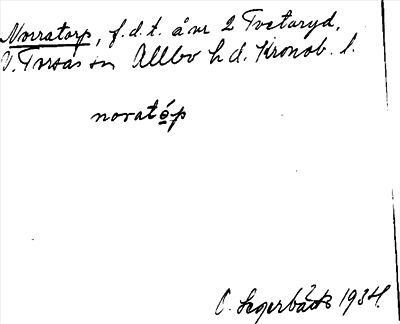 Norratorp, f. d. t. å nr 2 Tvetaryd,
V. Torsås sn Allbo hd. Kronob. l.
novatóp
O. Segerbäck 1934.